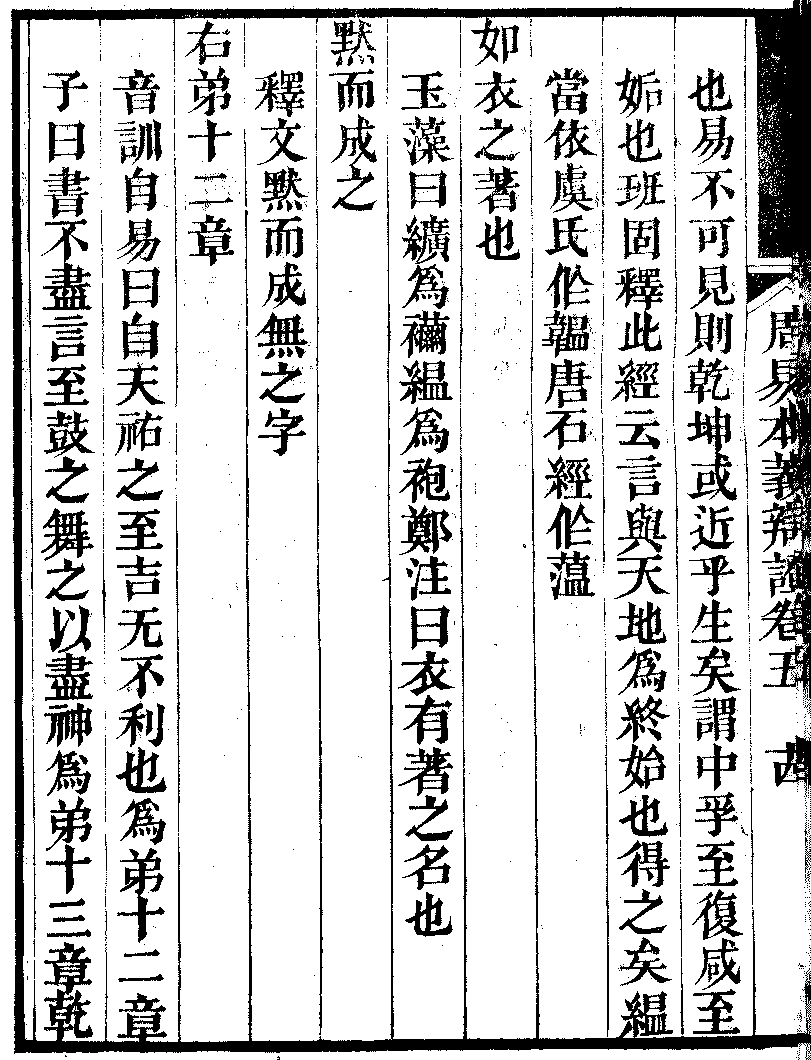 周易本義辯證卷五　古
也易不可見則乾坤或近乎生矣謂中孚至復咸至
姤也班固釋此經云言與天地爲終始也得之矣縕
當依虞氏作韞唐石經作薀
如衣之著也
玉藻曰纊爲襺縕爲袍鄭注曰衣有著之名也
默而成之
釋文默而成無之字
右弟十二章
音訓自易曰自天祐之至吉无不利也爲弟十二章
子曰書不盡言至鼓之舞之以盡神爲弟十三章乾